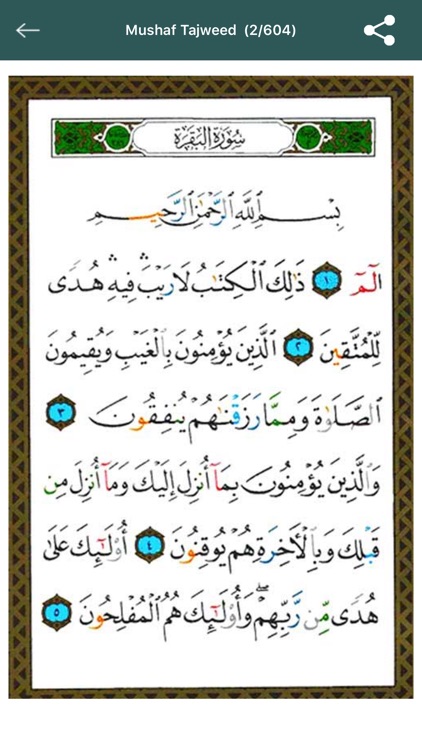 Mushaf Tajweed (2/604)
سُورَةُ البَقَرَةِ
بِسْمِ ٱللَّهِ ٱلرَّحْمَٰنِ ٱلرَّحِيمِ
الٓمٓ ١ ذَٰلِكَ ٱلْكِتَٰبُ لَا رَيْبَ ۛ فِيهِ ۛ هُدًى
لِّلْمُتَّقِينَ ٢ ٱلَّذِينَ يُؤْمِنُونَ بِٱلْغَيْبِ وَيُقِيمُونَ
ٱلصَّلَوٰةَ وَمِمَّا رَزَقْنَٰهُمْ يُنفِقُونَ ٣
وَٱلَّذِينَ يُؤْمِنُونَ بِمَآ أُنزِلَ إِلَيْكَ وَمَآ أُنزِلَ مِن
قَبْلِكَ وَبِٱلْءَاخِرَةِ هُمْ يُوقِنُونَ ٤ أُو۟لَٰٓئِكَ عَلَىٰ
هُدًى مِّن رَّبِّهِمْ ۖ وَأُو۟لَٰٓئِكَ هُمُ ٱلْمُفْلِحُونَ ٥